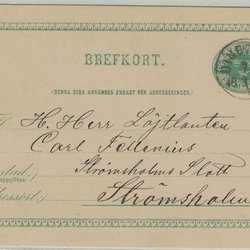 BREFKORT.
(DENNA SIDA ANVÄNDES ENDAST FÖR ADRESSERINGEN.)
H. Herr Löjtnanten
Carl Fellenius
Strömsholms Slott
Strömsholm